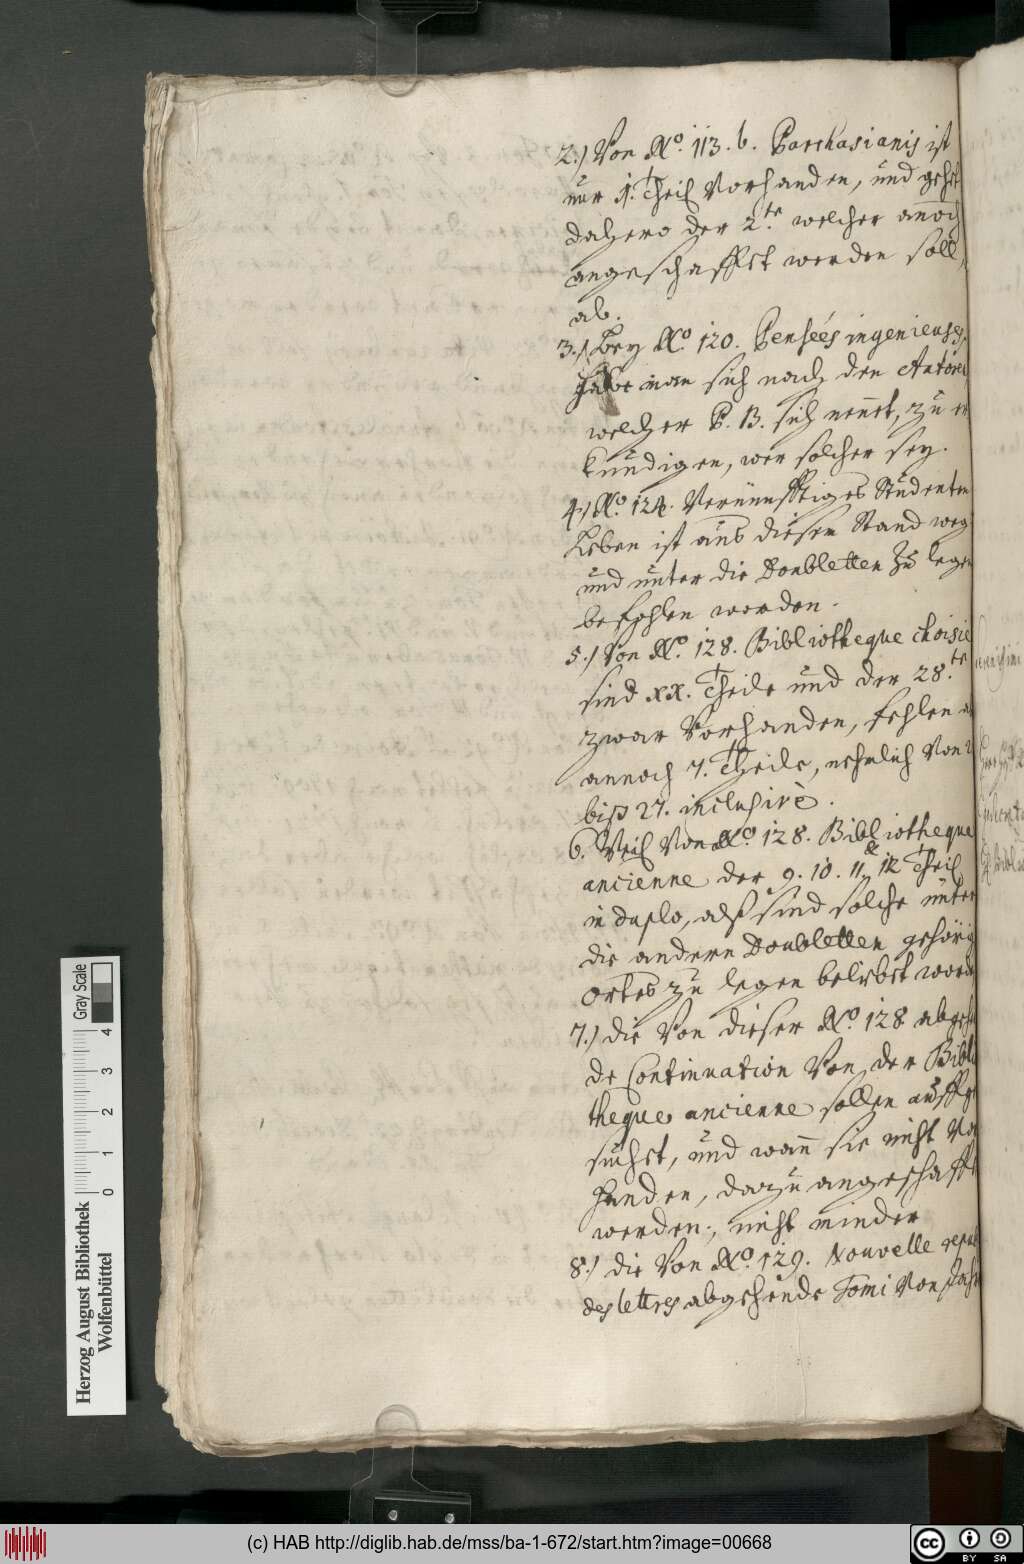 2.) Von No. 113. b. Parrhasianis ist
nur 1. Theil Vorhanden, und gehet
dahero der 2.te welcher annoch
angeschafft werden soll,
ab.
3.) Bey No. 120. Penseés ingenieuses,
habe man sich nach den Autore
welcher P. B. sich nennet, zu er
kundigen, wer solcher sey.
4.) No. 124. Vernunfftiges Studenten
Leben ist aus diesem Stand weg
und unter die Doubletten zu legen
befohlen worden.
5.) Von No. 128. Bibliotheque choisie
sind XX. Theile und der 28.te
zwar Vorhanden, fehlen
annoch 7. Theile, nehmlich Von
biß 27. inclusivè.
6. Weil Von No. 128. Bibliotheque
ancienne der 9. 10. 11. & 12 Theil
in duplo, alß sind solche unter
die andern Doubletten gehörig
Ortes zu legen beliebet worde
7.) die Von dieser No. 128 abgehe
de Continuation Von der Bibli
theque ancienne sollen auffge
suchet, und wann sie nicht Vor
handen, darzu angeschafft
werden, nicht minder
8.) die Von No. 129. Nouvelle repub
des lettres abgehende Tomi Von Jahr
Herzog August Bibliothek
Wolfenbüttel
Gray Scale
0 1 2 3 4
(c) HAB http://diglib.hab.de/mss/ba-1-672/start.htm?image=00668
cc BY SA